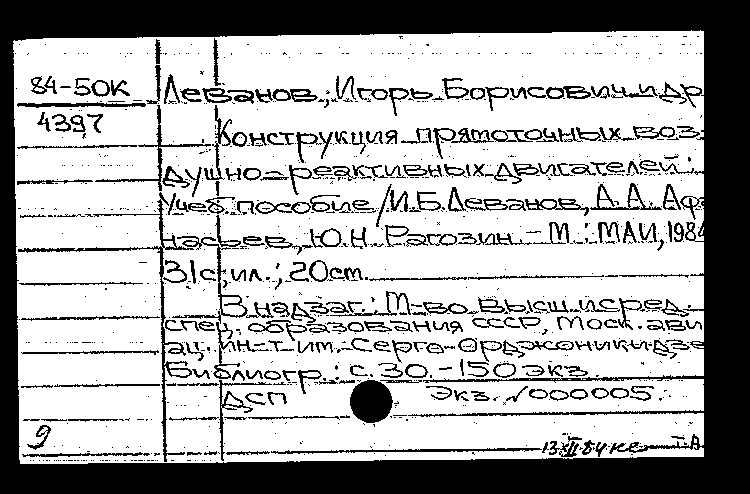 84-50К Леванов, Игорь Борисович и др
4397 Конструкция прямоточных воз-
душно-реактивных двигателей:
Учеб. пособие / И.Б. Леванов, А.А. Афа
насьев, Ю.Н. Рагозин. - М.: МАИ, 1984
31 с.; ил.; 20 см.
В надзаг.: М-во высш. и сред.
спец. образования СССР, Моск. ави
ац. ин-т им. Серго Орджоникидзе
Библиогр.: с. 30. - 150 экз.
ДСП Экз. №000005.
9